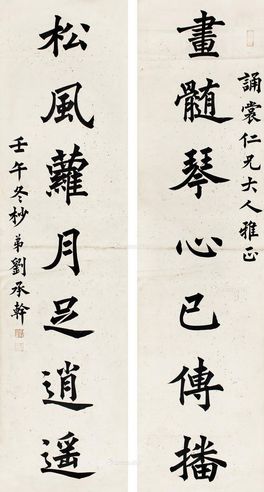 誦裳仁兄大人雅正
畫髓琴心已傳播
松風蘿月足逍遥
壬午冬杪弟劉承幹